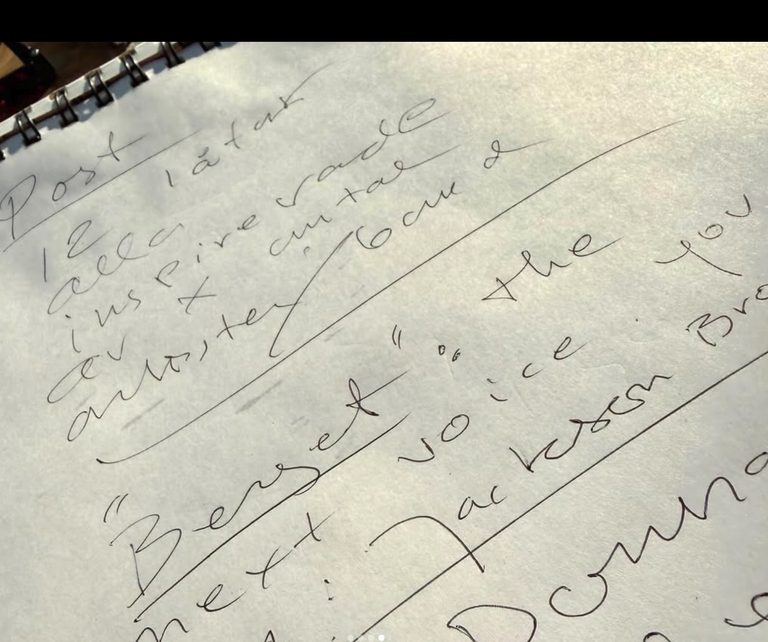 Post
12 låtar
alla
inspirerade
av x antal
artister/band
"Berget": the
next voice you
: Jackson Bro
Donna